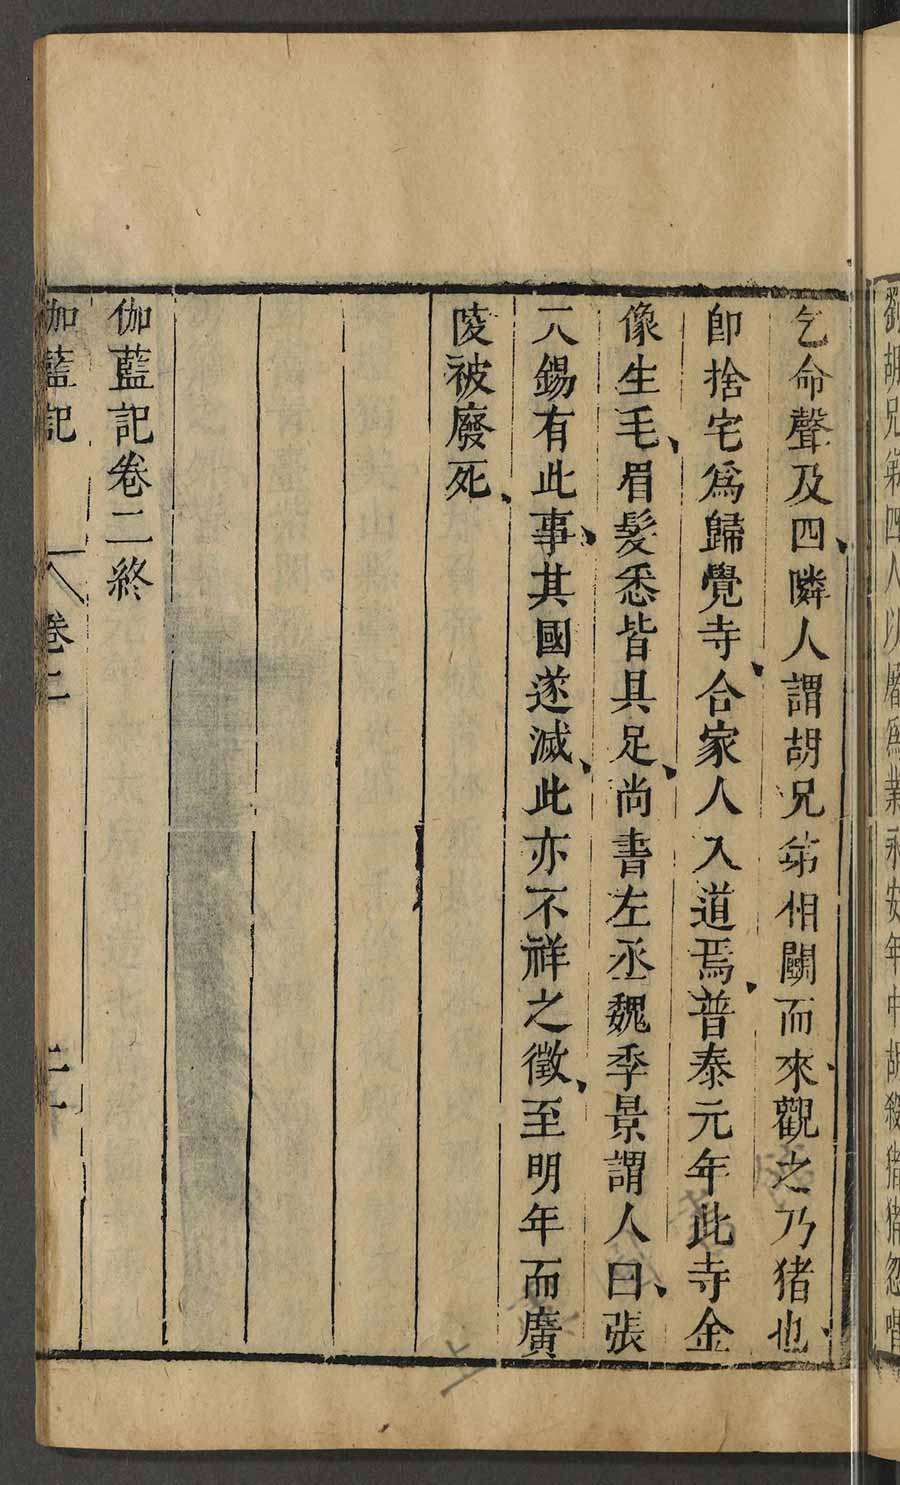 劉胡兄弟四人以屠為業永安年中胡殺猪猪忽唱
乞命聲及四隣人謂胡兄弟相鬭而來觀之乃猪也
卽捨宅爲歸覺寺合家人入道焉普泰元年此寺金
像生毛眉髮悉皆具足尚書左丞魏季景謂人曰張
天錫有此事其國遂滅此亦不祥之徵至明年而廣
陵被廢死
伽藍記卷二終
伽藍記 卷二